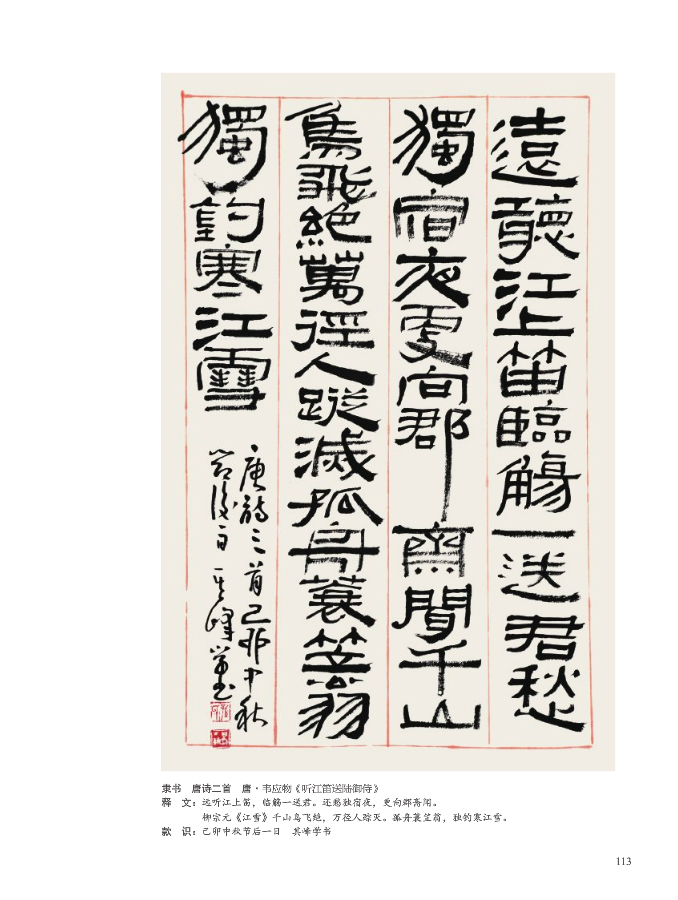 遠聽江上笛臨觴一送君愁
獨宿夜更向郡齋聞千山
鳥飛絕萬徑人蹤滅孤舟蓑笠翁
獨釣寒江雪
唐詩二首己卯中秋
節後一日其峰學書
隶书 唐诗二首 唐·韦应物《听江笛送陆御侍》
释 文：远听江上笛，临觞一送君。还愁独宿夜，更向郡斋闻。
柳宗元《江雪》千山鸟飞绝，万径人踪灭。孤舟蓑笠翁，独钓寒江雪。
款 识：己卯中秋节后一日 其峰学书
113